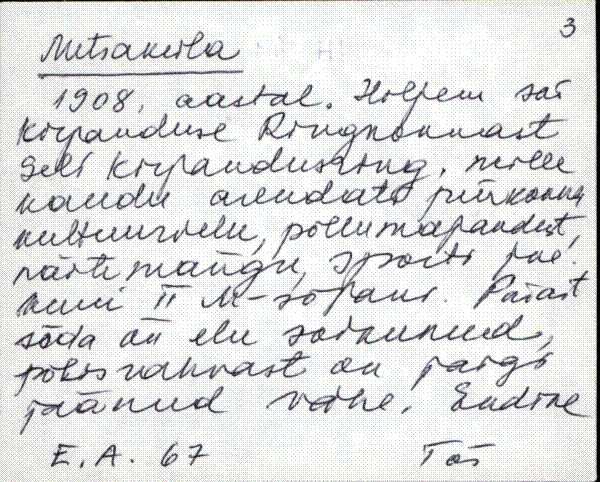 3
Metsakirla
1908. aastal. Hiljem sai
Kirjanduse Ringkonnast
sell Kirjandusring, mille
kaudu arendati piirkonna
kultuurielu, põllumajandust,
näitemängu, sporti jne.
kuni II M-sõjani. Pärast
sõda on elu soikunud,
põlisrahvast on järgi
jäänud vähe. Endine
E. A. 67
Täs